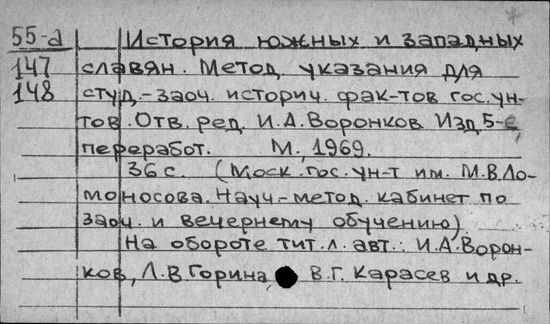 55-а История южных и западных
147 славян. Метод. указания для
148 студ.-заоч. историч. фак-тов гос. ун-
тов. Отв. ред. И.А. Воронков. Изд 5-е,
переработ. М., 1969.
36 с. (Моск. гос. ун-т им. М.В. Ло-
моносова. Науч-метод. кабинет по
заоч. и вечернему обучению).
На обороте тит. л. авт.: И.А. Ворон-
ков, Л.В. Горина, В.Г. Карасев и др.